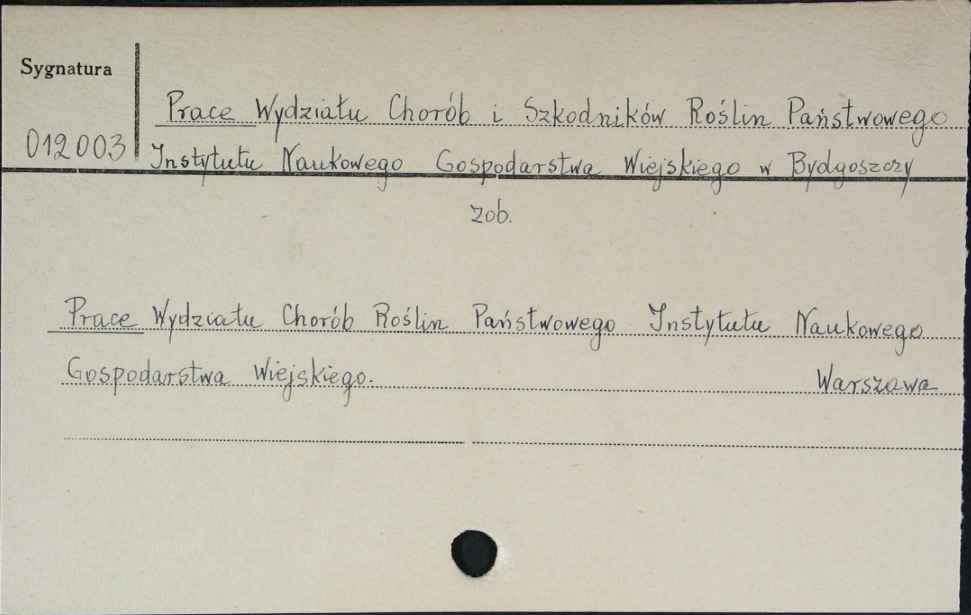 Sygnatura
012003
Prace Wydziału Chorób i Szkodników Roślin Państwowego
Instytutu Naukowego Gospodarstwa Wiejskiego w Bydgoszczy
zob.
Prace Wydziału Chorób Roślin Państwowego Instytutu Naukowego
Gospodarstwa Wiejskiego. Warszawa